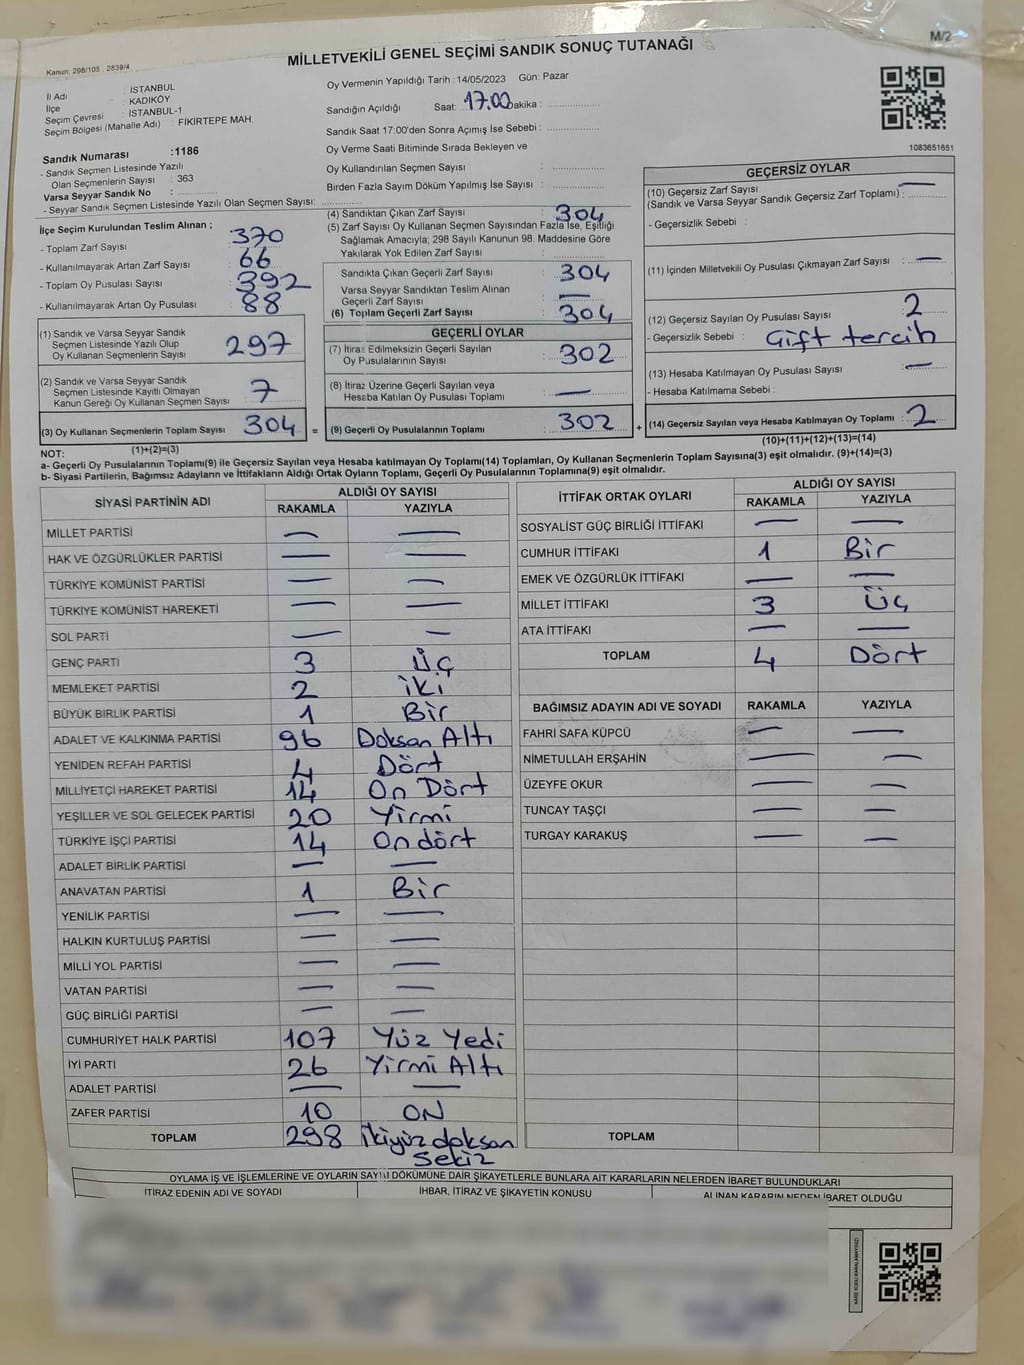 M/2
MİLLETVEKİLİ GENEL SEÇİMİ SANDIK SONUÇ TUTANAĞI
Kanun: 298/105 . 2839/4
İl Adı : İSTANBUL
İlçe : KADIKÖY
Seçim Çevresi : İSTANBUL-1
Seçim Bölgesi (Mahalle Adı) : FİKİRTEPE MAH.
Sandık Numarası : 1186
- Sandık Seçmen Listesinde Yazılı
Olan Seçmenlerin Sayısı : 363
Varsa Seyyar Sandık No :
- Seyyar Sandık Seçmen Listesinde Yazılı Olan Seçmen Sayısı:
Oy Vermenin Yapıldığı Tarih : 14/05/2023 Gün: Pazar
Sandığın Açıldığı Saat: 17.00 Dakika :
Sandık Saat 17:00'den Sonra Açımış İse Sebebi :
Oy Verme Saati Bitiminde Sırada Bekleyen ve
Oy Kullandırılan Seçmen Sayısı :
Birden Fazla Sayım Döküm Yapılmış İse Sayısı :
1083651651
İlçe Seçim Kurulundan Teslim Alınan ;
- Toplam Zarf Sayısı 370
- Kullanılmayarak Artan Zarf Sayısı 66
- Toplam Oy Pusulası Sayısı 392
- Kullanılmayarak Artan Oy Pusulası 88
(1) Sandık ve Varsa Seyyar Sandık
Seçmen Listesinde Yazılı Olup
Oy Kullanan Seçmenlerin Sayısı 297
(2) Sandık ve Varsa Seyyar Sandık
Seçmen Listesinde Kayıtlı Olmayan
Kanun Gereği Oy Kullanan Seçmen Sayısı 7
(3) Oy Kullanan Seçmenlerin Toplam Sayısı 304 =
(1)+(2)=(3)
(4) Sandıktan Çıkan Zarf Sayısı : 304
(5) Zarf Sayısı Oy Kullanan Seçmen Sayısından Fazla İse, Eşitliği
Sağlamak Amacıyla; 298 Sayılı Kanunun 98. Maddesine Göre
Yakılarak Yok Edilen Zarf Sayısı :
Sandıkta Çıkan Geçerli Zarf Sayısı : 304
Varsa Seyyar Sandıktan Teslim Alınan
Geçerli Zarf Sayısı : —
(6) Toplam Geçerli Zarf Sayısı : 304
GEÇERLİ OYLAR
(7) İtiraz Edilmeksizin Geçerli Sayılan
Oy Pusulalarının Sayısı : 302
(8) İtiraz Üzerine Geçerli Sayılan veya
Hesaba Katılan Oy Pusulası Toplamı : —
(9) Geçerli Oy Pusulalarının Toplamı : 302 +
GEÇERSİZ OYLAR
(10) Geçersiz Zarf Sayısı —
(Sandık ve Varsa Seyyar Sandık Geçersiz Zarf Toplamı) :
- Geçersizlik Sebebi :
(11) İçinden Milletvekili Oy Pusulası Çıkmayan Zarf Sayısı : —
(12) Geçersiz Sayılan Oy Pusulası Sayısı : 2
- Geçersizlik Sebebi : Çift tercih
(13) Hesaba Katılmayan Oy Pusulası Sayısı : —
- Hesaba Katılmama Sebebi :
(14) Geçersiz Sayılan veya Hesaba Katılmayan Oy Toplamı : 2
(10)+(11)+(12)+(13)=(14)
NOT:
a- Geçerli Oy Pusulalarının Toplamı(9) ile Geçersiz Sayılan veya Hesaba katılmayan Oy Toplamı(14) Toplamları, Oy Kullanan Seçmenlerin Toplam Sayısına(3) eşit olmalıdır. (9)+(14)=(3)
b- Siyasi Partilerin, Bağımsız Adayların ve İttifakların Aldığı Ortak Oyların Toplamı, Geçerli Oy Pusulalarının Toplamına(9) eşit olmalıdır.
SİYASİ PARTİNİN ADI ALDIĞI OY SAYISI
RAKAMLA YAZIYLA
MİLLET PARTİSİ — —
HAK VE ÖZGÜRLÜKLER PARTİSİ — —
TÜRKİYE KOMÜNİST PARTİSİ — —
TÜRKİYE KOMÜNİST HAREKETİ — —
SOL PARTİ — —
GENÇ PARTİ 3 Üç
MEMLEKET PARTİSİ 2 İki
BÜYÜK BİRLİK PARTİSİ 1 Bir
ADALET VE KALKINMA PARTİSİ 96 Doksan Altı
YENİDEN REFAH PARTİSİ 4 Dört
MİLLİYETÇİ HAREKET PARTİSİ 14 On Dört
YEŞİLLER VE SOL GELECEK PARTİSİ 20 Yirmi
TÜRKİYE İŞÇİ PARTİSİ 14 On dört
ADALET BİRLİK PARTİSİ — —
ANAVATAN PARTİSİ 1 Bir
YENİLİK PARTİSİ — —
HALKIN KURTULUŞ PARTİSİ — —
MİLLİ YOL PARTİSİ — —
VATAN PARTİSİ — —
GÜÇ BİRLİĞİ PARTİSİ — —
CUMHURİYET HALK PARTİSİ 107 Yüz Yedi
İYİ PARTİ 26 Yirmi Altı
ADALET PARTİSİ — —
ZAFER PARTİSİ 10 ON
TOPLAM 298 İkiyüz doksan
sekiz
İTTİFAK ORTAK OYLARI ALDIĞI OY SAYISI
RAKAMLA YAZIYLA
SOSYALİST GÜÇ BİRLİĞİ İTTİFAKI — —
CUMHUR İTTİFAKI 1 Bir
EMEK VE ÖZGÜRLÜK İTTİFAKI — —
MİLLET İTTİFAKI 3 Üç
ATA İTTİFAKI — —
TOPLAM 4 Dört
BAĞIMSIZ ADAYIN ADI VE SOYADI RAKAMLA YAZIYLA
FAHRİ SAFA KÜPCÜ — —
NİMETULLAH ERŞAHİN — —
ÜZEYFE OKUR — —
TUNCAY TAŞÇI — —
TURGAY KARAKUŞ — —
TOPLAM
OYLAMA İŞ VE İŞLEMLERİNE VE OYLARIN SAYIM DÖKÜMÜNE DAİR ŞİKAYETLERLE BUNLARA AİT KARARLARIN NELERDEN İBARET BULUNDUKLARI
İTİRAZ EDENİN ADI VE SOYADI İHBAR, İTİRAZ VE ŞİKAYETİN KONUSU ALINAN KARARIN NEDEN İBARET OLDUĞU